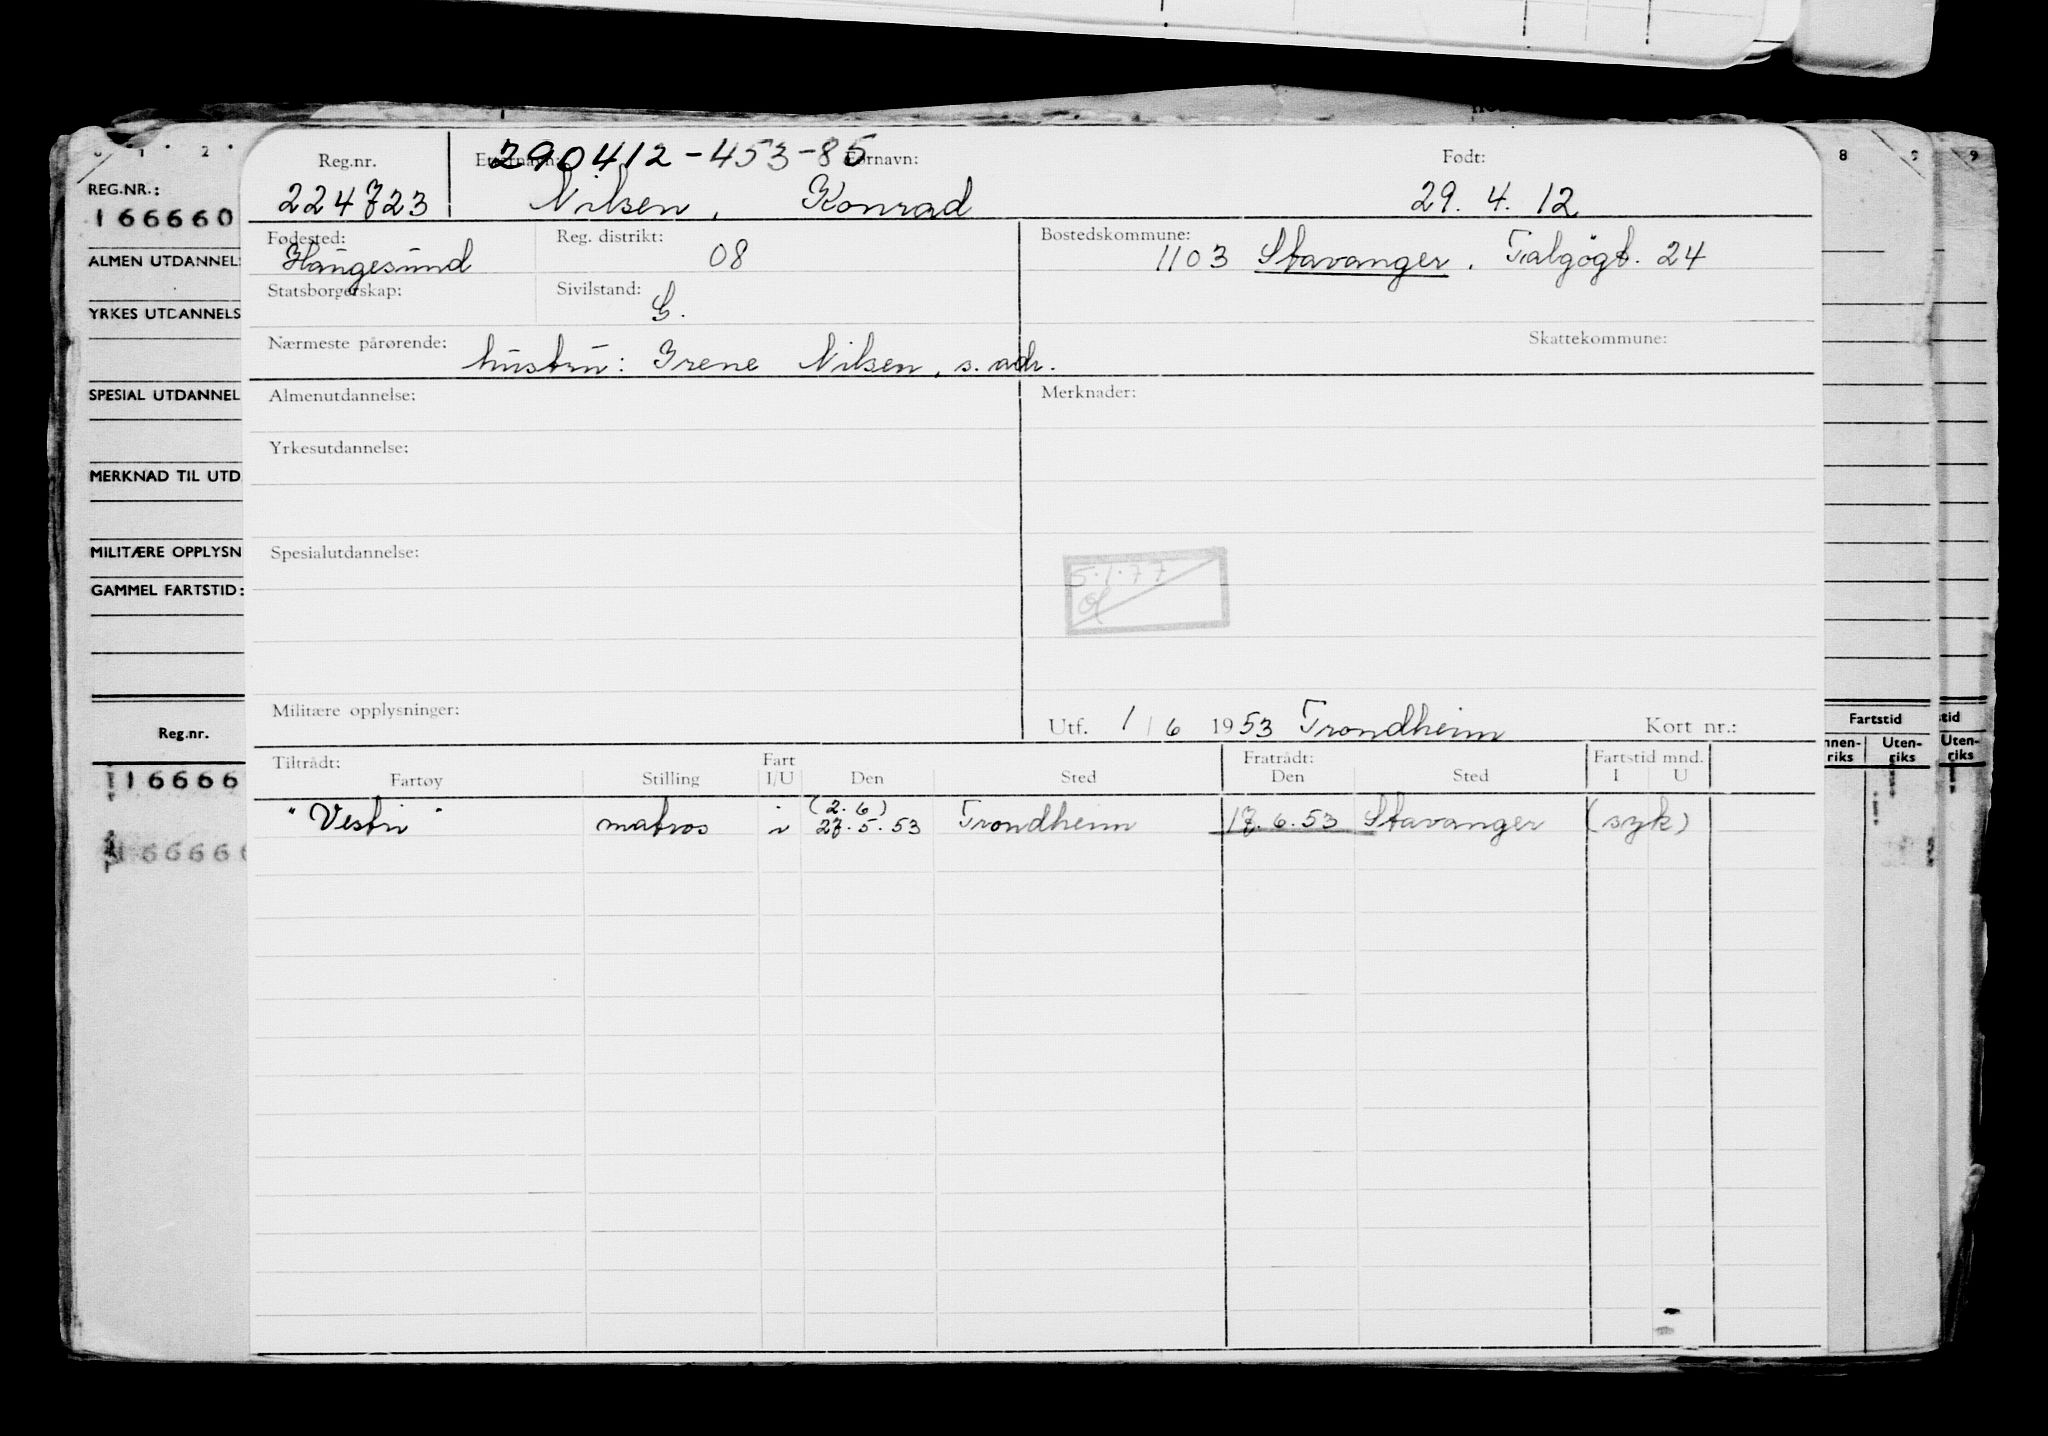 Reg.nr. Etternavn: 290412-453-85 Fornavn: Født:
224723 Nilsen, Konrad 29. 4. 12
Fødested: Reg. distrikt: Bostedskommune:
Haugesund 08 1103 Stavanger. Talgøgt. 24
Statsborgerskap: Sivilstand:
G.
Nærmeste pårørende: Skattekommune:
hustru: Irene Nilsen, s. adr.
Almenutdannelse: Merknader:
Yrkesutdannelse:
Spesialutdannelse:
5.1.77
Militære opplysninger:
Utf. 1/6 1953 Trondheim Kort nr.:
Tiltrådt: Fart Fratrådt: Fartstid mnd.
Fartøy Stilling I/U Den Sted Den Sted I U
(2.6)
"Vestri" matros i 27.5.53 Trondheim 17.6.53 Stavanger (syk)
1 2
REG.NR.:
166660
ALMEN UTDANNEL
YRKES UTDANNELS
SPESIAL UTDANNEL
MERKNAD TIL UTD
MILITÆRE OPPLYSN
GAMMEL FARTSTID:
Reg.nr.
16666
166666
8 9 9
Fartstid
nnen-riks Uten-riks
tid
Uten-riks